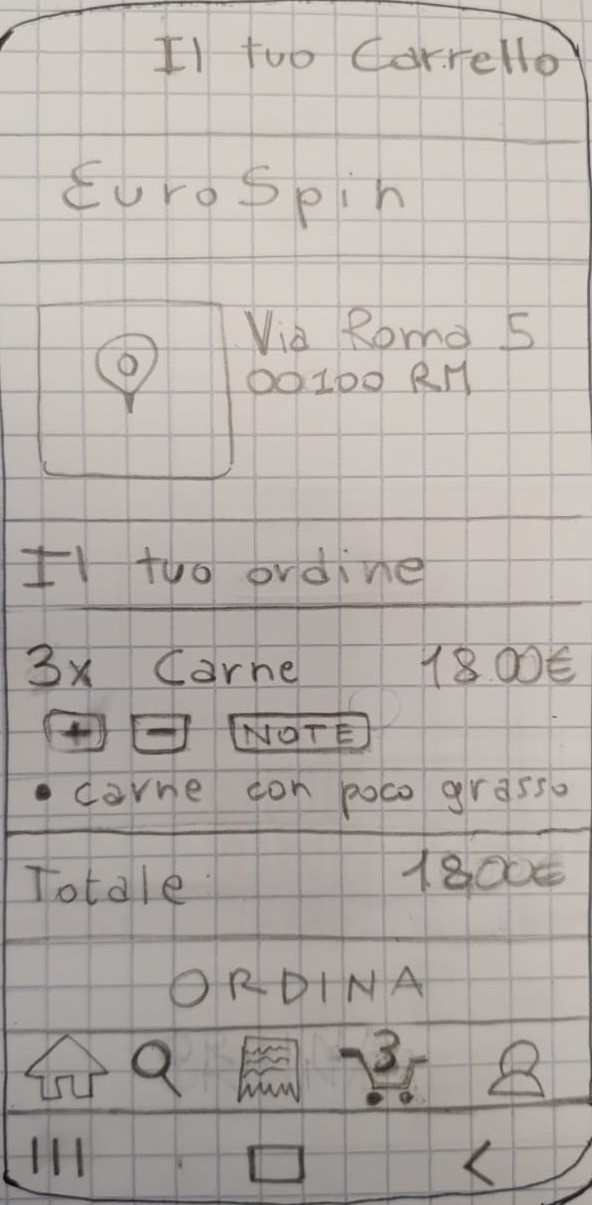 Il tuo Carrello
EuroSpin
Via Roma 5
00100 RM
Il tuo ordine
3x Carne 18.00€
+ - NOTE
• carne con poco grasso
Totale 18,00€
ORDINA
3